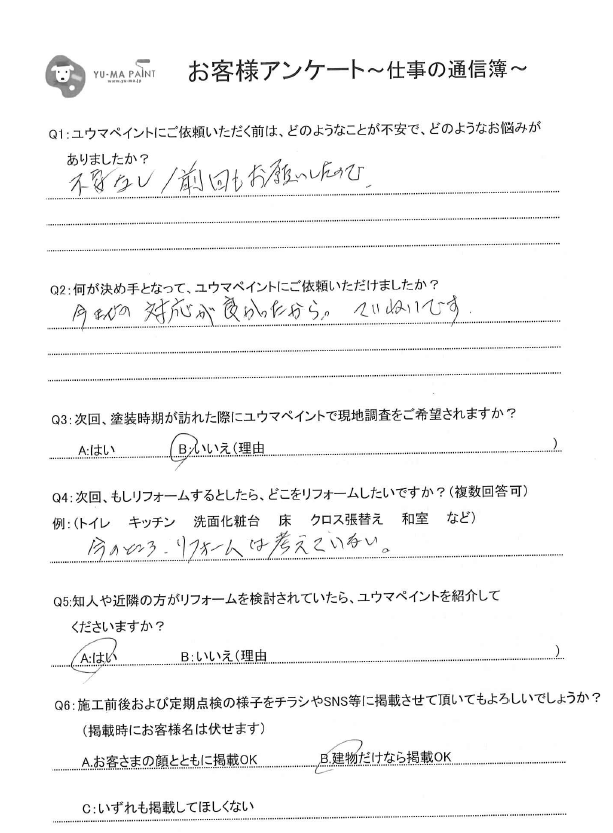 YU-MA PAINT
www.yu-ma.jp
お客様アンケート～仕事の通信簿～
Q1:ユウマペイントにご依頼いただく前は、どのようなことが不安で、どのようなお悩みが
ありましたか？
不安なし/前回もお願いしたので
Q2:何が決め手となって、ユウマペイントにご依頼いただけましたか？
今までの対応が良かったから。ていねいです.
Q3:次回、塗装時期が訪れた際にユウマペイントで現地調査をご希望されますか？
A:はい B:いいえ(理由 )
Q4:次回、もしリフォームするとしたら、どこをリフォームしたいですか？(複数回答可)
例:(トイレ キッチン 洗面化粧台 床 クロス張替え 和室 など)
今のところ.リフォームは考えていない。
Q5:知人や近隣の方がリフォームを検討されていたら、ユウマペイントを紹介して
くださいますか？
A:はい B:いいえ(理由 )
Q6:施工前後および定期点検の様子をチラシやSNS等に掲載させて頂いてもよろしいでしょうか？
(掲載時にお客様名は伏せます)
A.お客さまの顔とともに掲載OK B.建物だけなら掲載OK
C:いずれも掲載してほしくない